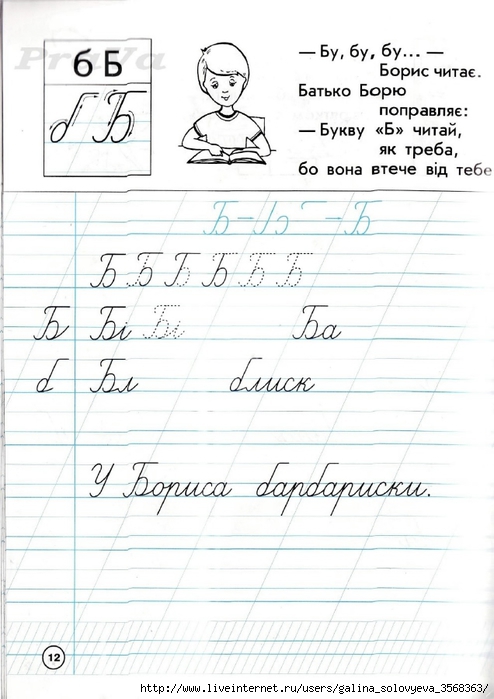 PraVa
б Б
б Б
— Бу, бу, бу... —
Борис читає.
Батько Борю
поправляє:
— Букву «Б» читай,
як треба,
бо вона втече від тебе
Б Б Б Б Б Б
Б Бі Бі Ба
б Бл блиск
У Бориса барбариски.
12
http://www.liveinternet.ru/users/galina_solovyeva_3568363/